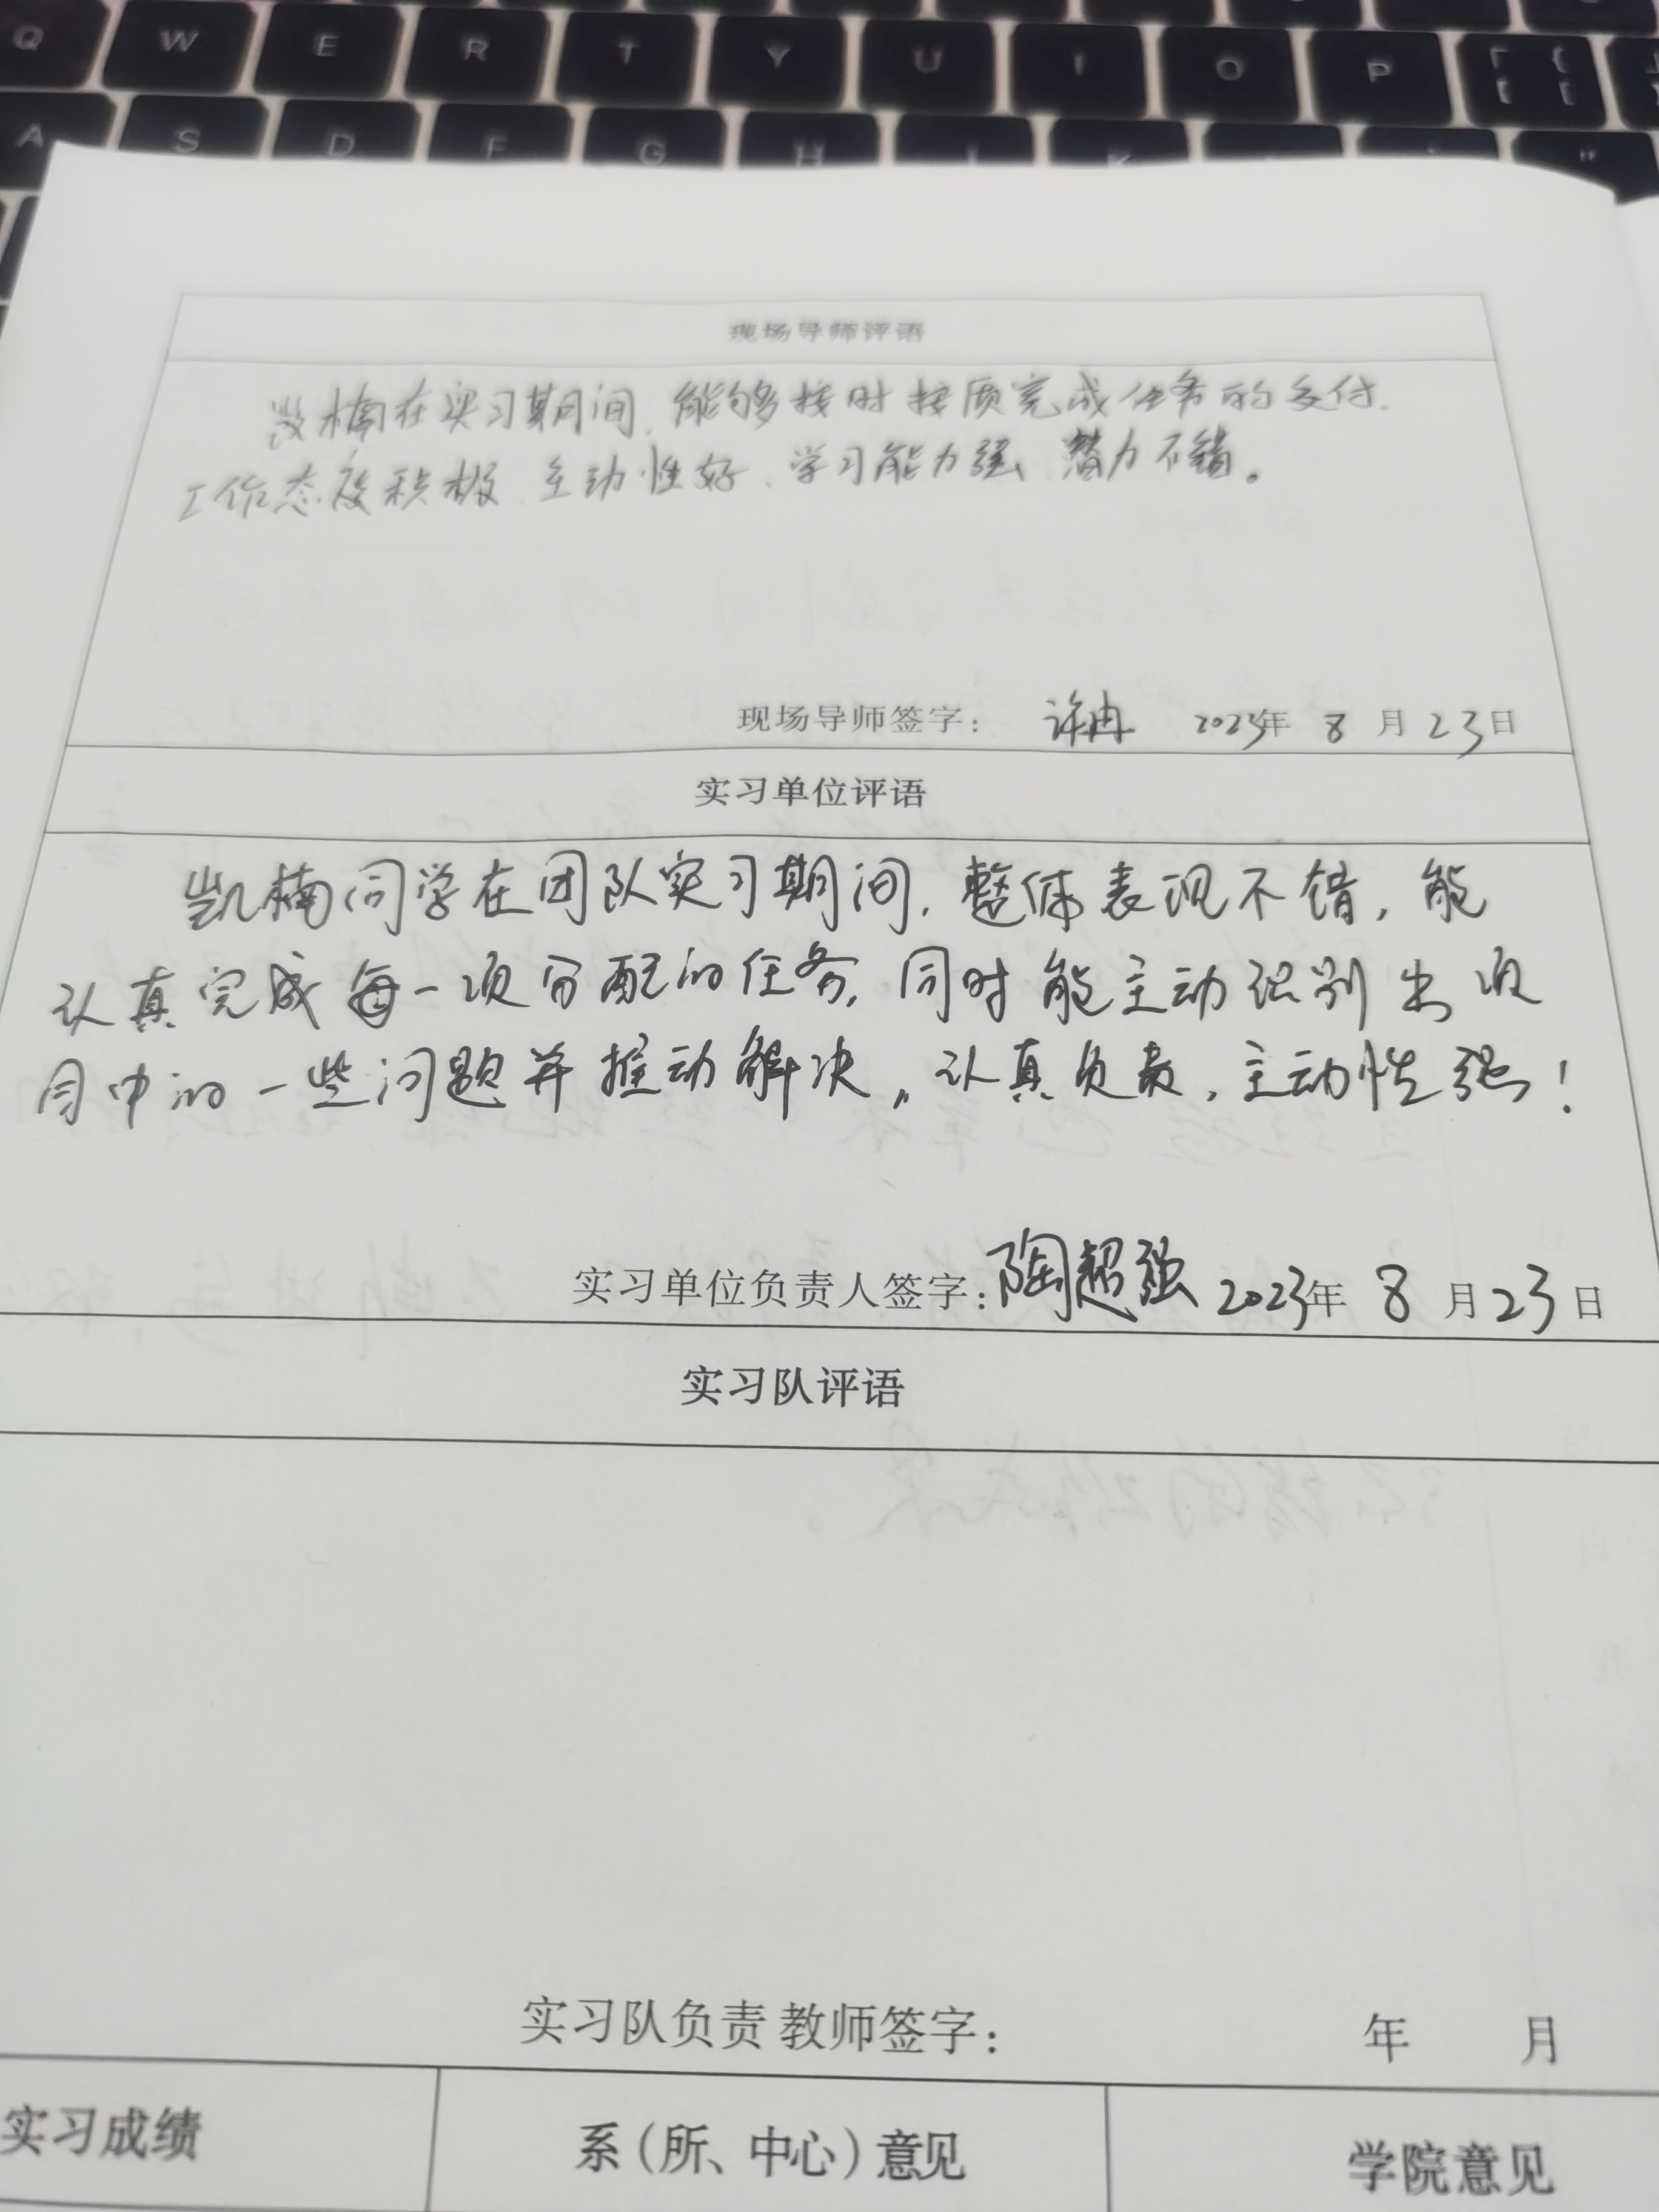 Q W E R T Y U I O P { [
A S D F G H J K
现场导师评语
凯楠在实习期间,能够按时按质完成任务的交付,
工作态度积极、主动性好、学习能力强、潜力不错。
现场导师签字: 许冉 2023年 8 月 23日
实习单位评语
凯楠同学在团队实习期间,整体表现不错,能
认真完成每一项分配的任务,同时能主动识别出项
目中的一些问题并推动解决,认真负责,主动性强!
实习单位负责人签字:陶超强 2023年 8 月 23 日
实习队评语
实习队负责教师签字: 年 月
实习成绩 系(所、中心)意见 学院意见